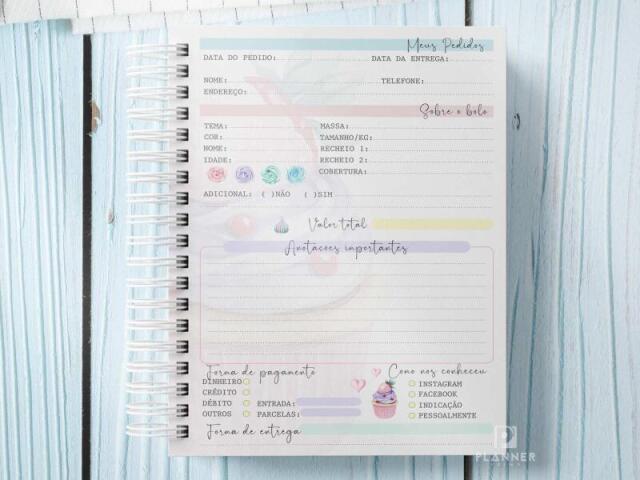 Meus Pedidos
DATA DO PEDIDO: DATA DA ENTREGA:
NOME: TELEFONE:
ENDEREÇO:
Sobre o bolo
TEMA: MASSA:
COR: TAMANHO/KG:
NOME: RECHEIO 1:
IDADE: RECHEIO 2:
COBERTURA:
ADICIONAL: ( )NÃO ( )SIM
Valor total
Anotacoes importantes
Forma de pagamento Como nos conheceu
DINHEIRO INSTAGRAM
CRÉDITO FACEBOOK
DÉBITO ENTRADA: INDICAÇÃO
OUTROS PARCELAS: PESSOALMENTE
Forma de entrega
PLANNER